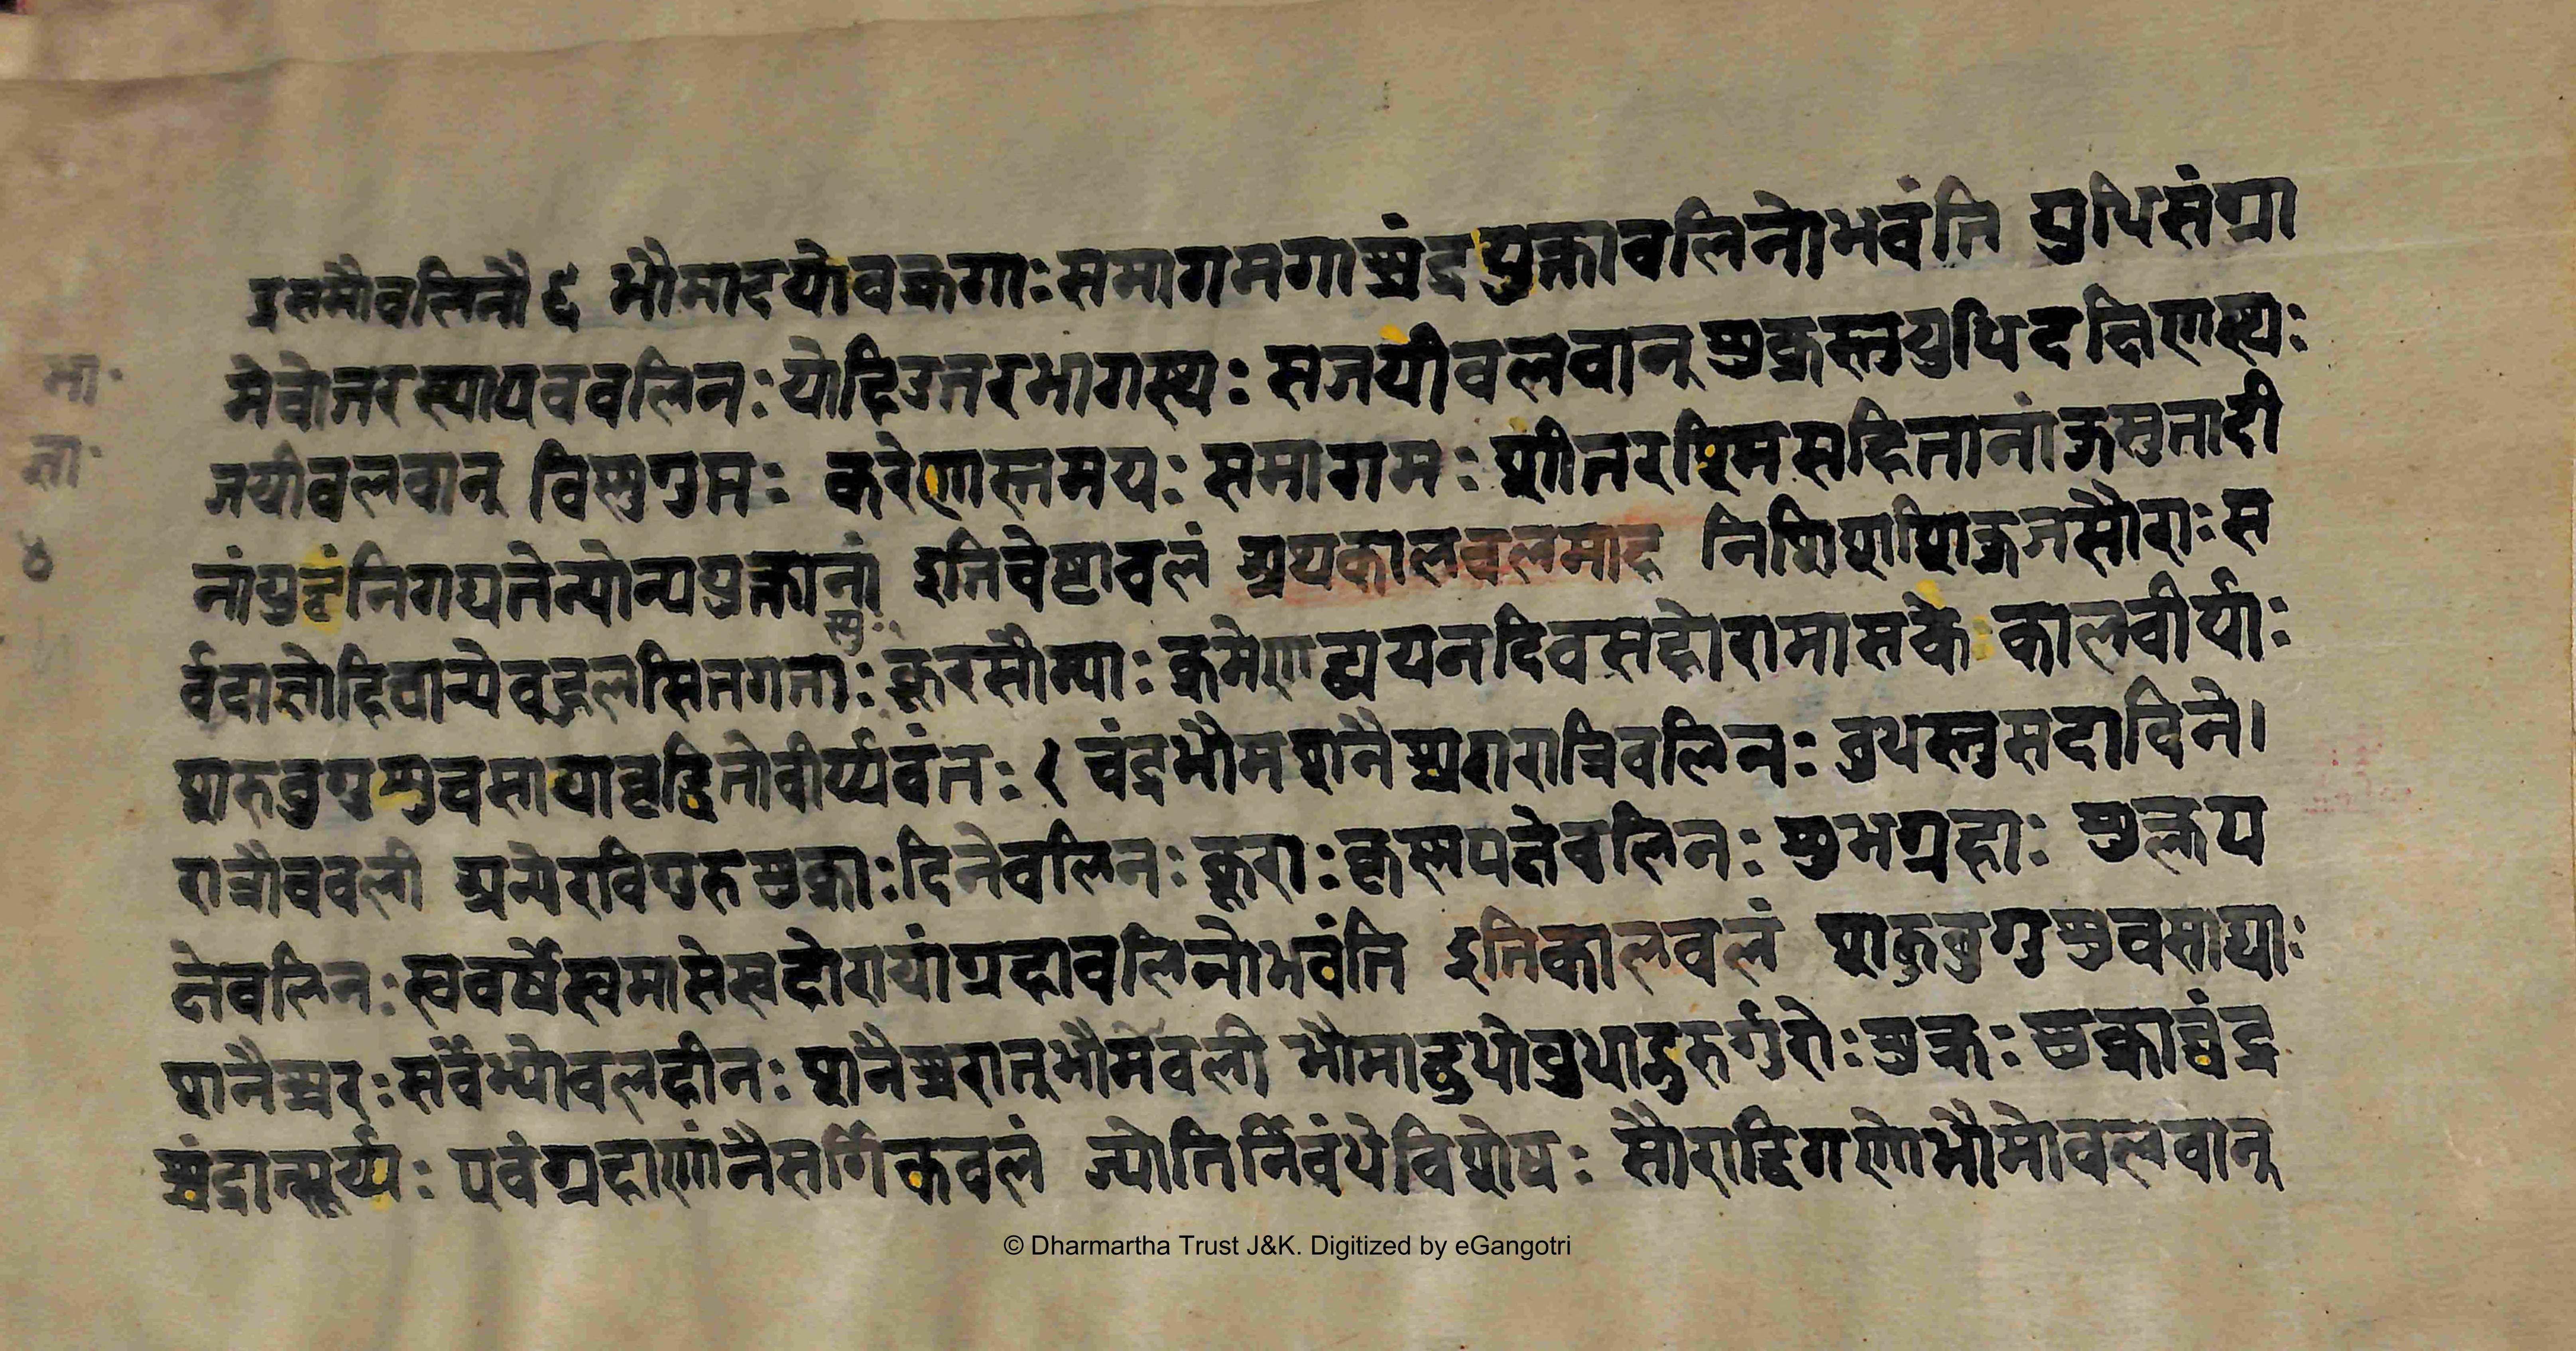 द्रसमौवलिनौ ६ भौमादयोवक्रगाः समागमगाश्चंद्रयुक्तावलिनोभवंति युधिसंग्रा
मेचोत्तरस्थाएववलिनः योहिउत्तरभागस्थः सजयीवलवान् शुक्रस्तुयुधिदक्षिणस्थः
जयीवलवान् विष्णुगुप्तः करेणास्तमयः समागमः शीतरश्मिसहितानांकुसुतादी
नांयुद्धंनिगद्यतेन्योन्ययुक्तानां इतिचेष्टावलं अथकालवलमाह निशिशशिकुजसौराः स
र्वदाज्ञोह्निचान्येवहुलसितगताः स्युः क्रूरसौम्याः क्रमेणद्व्ययनदिवसहोरामासकैः कालवीर्याः
शरुवुगुशुचसाद्यावृद्धितोवीर्य्यवंतः १ चंद्रभौमशनैश्चरारात्रिवलिनः वुधस्तुसदादिने।
रात्रौचवली अन्येरविगुरुशुक्राः दिनेवलिनः क्रूराः कृष्णपक्षेवलिनः शुभग्रहाः शुक्लप
क्षेवलिनः स्ववर्षेस्वमासेस्वहोरायांग्रहावलिनोभवंति इतिकालवलं शकुवुगुशुचसाद्याः
शनैश्चरः सर्वेभ्योवलहीनः शनैश्चरात्भौमोवली भौमाद्वुधोवुधाद्गुरुर्गुरोः शुक्रः शुक्राच्चंद्र
श्चंद्रात्सूर्य्यः एवंग्रहाणांनैसर्गिकवलं ज्योतिर्निवंधेविशेषः सौराद्द्विगुणोभौमोवलवान्
मा॰
सा॰
४
© Dharmartha Trust J&K. Digitized by eGangotri